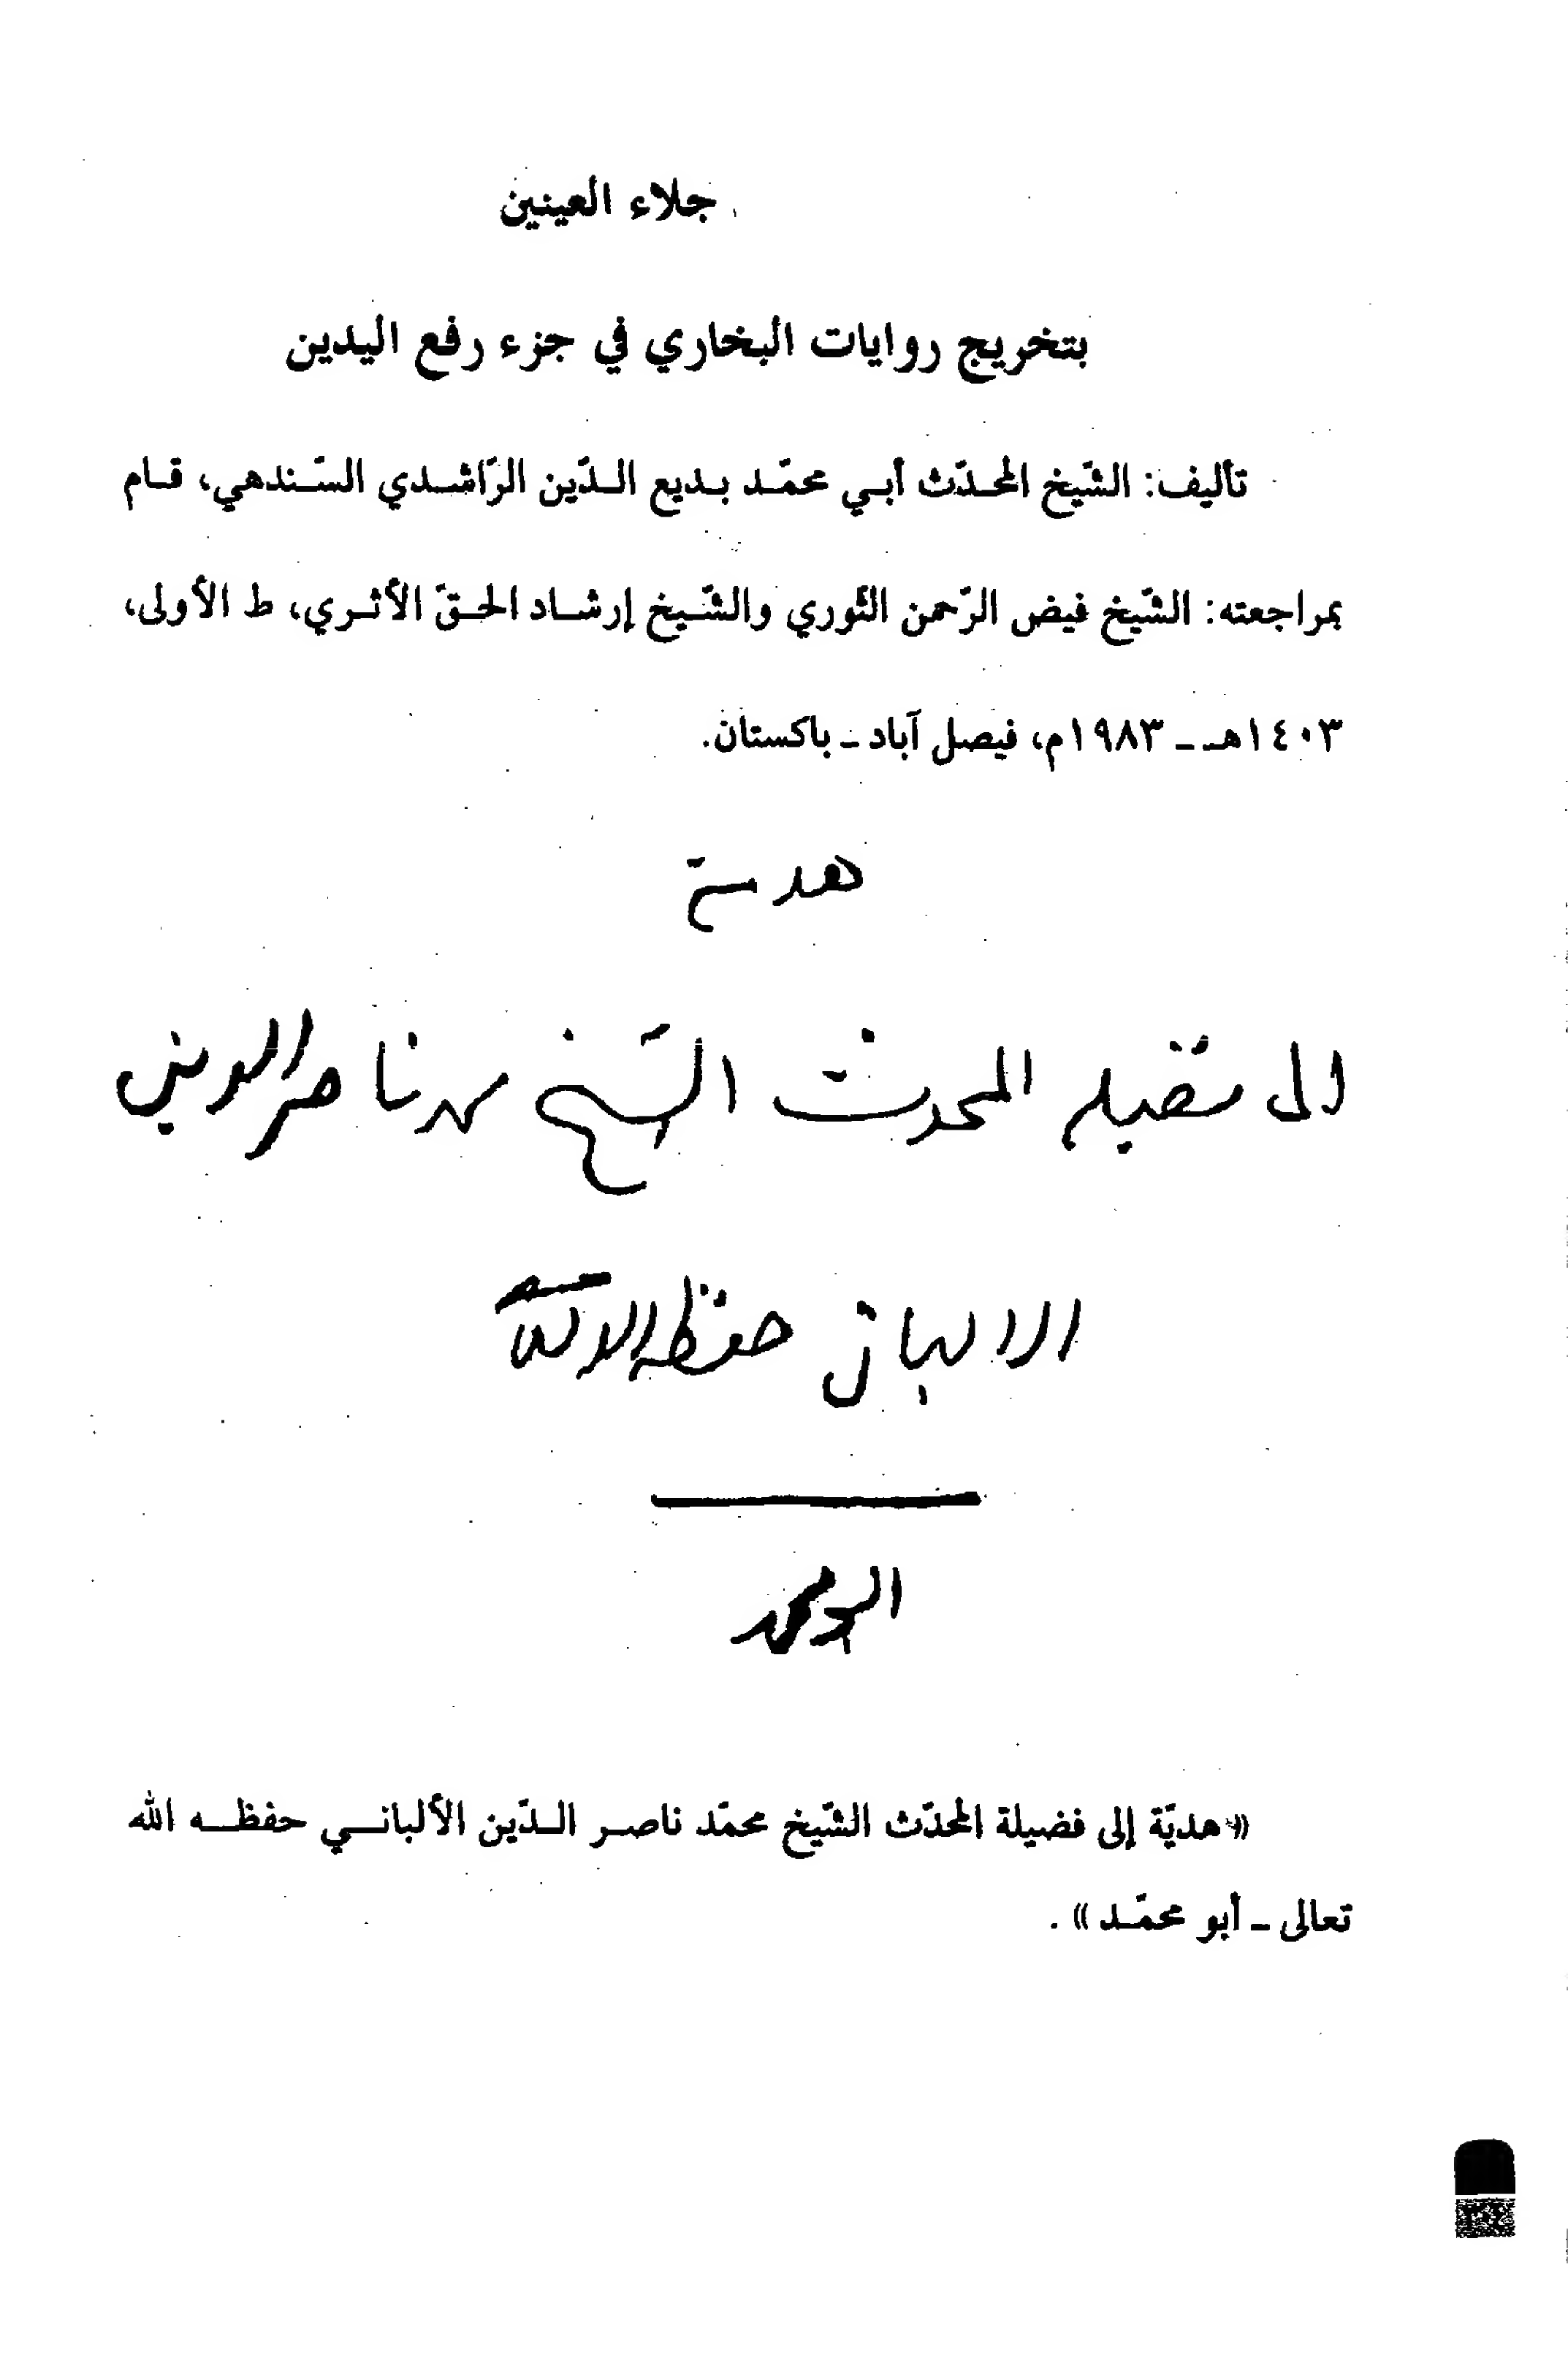 جلاء العينين
بتخريج روايات البخاري في جزء رفع اليدين
تأليف: الشّيخ المحدّث أبي محمّد بديع الدّين الرّاشدي السّندهي، قام
بمراجعته: الشّيخ فيض الرّحمن الثّوري والشّيخ إرشاد الحقّ الأثري، ط الأولى،
١٤٠٣هـ - ١٩٨٣م، فيصل آباد - باكستان.
هدية
الى فضيلة المحدث الشيخ محمد ناصر الدين
الالباني حفظه الله تعالى
ابو محمد
«هديّة إلى فضيلة المحدّث الشّيخ محمّد ناصر الدّين الألباني حفظه الله
تعالى - أبو محمّد» .